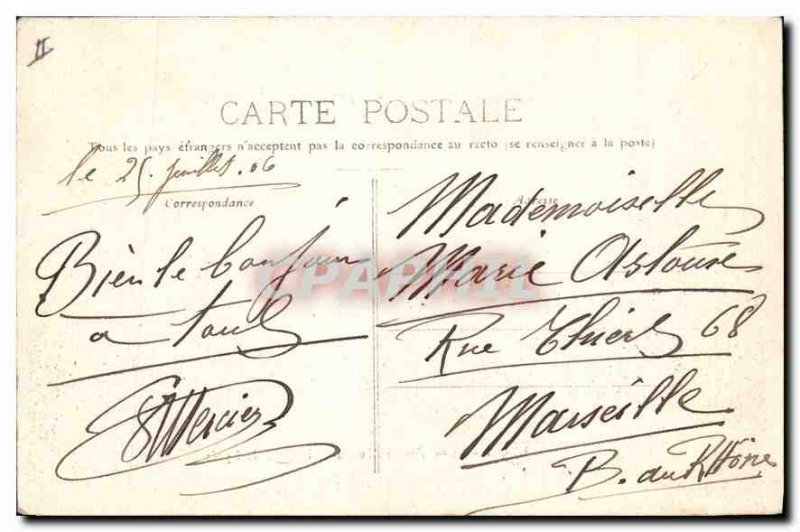 II
CARTE POSTALE
Tous les pays étrangers n'acceptent pas la correspondance au recto (se renseigner à la poste)
le 25 juillet. 06
Correspondance
Adresse
Bien le bonjour
a tous
Mercier
Mademoiselle
Marie
Rue Thiers 68
Marseille
B. du Rhône
CPARAMA